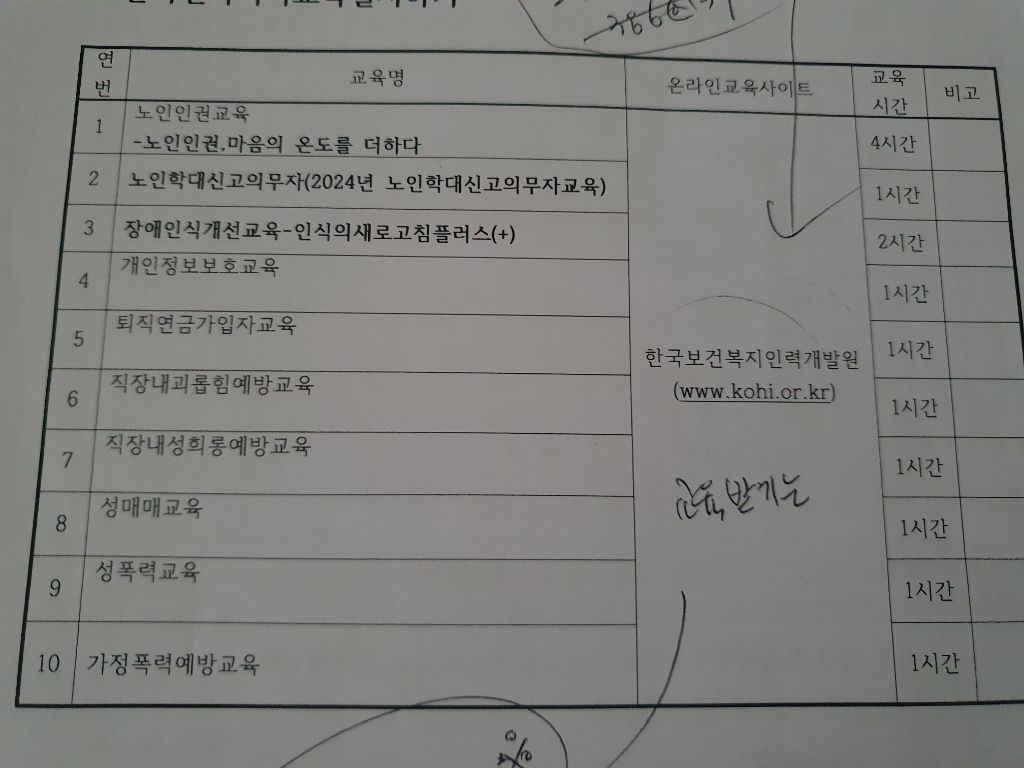 연
번
교육명
온라인교육사이트
교육
시간
비고
1
노인인권교육
-노인인권.마음의 온도를 더하다
4시간
2
노인학대신고의무자(2024년 노인학대신고의무자교육)
1시간
3
장애인식개선교육-인식의새로고침플러스(+)
2시간
4
개인정보보호교육
1시간
5
퇴직연금가입자교육
1시간
한국보건복지인력개발원
(www.kohi.or.kr)
6
직장내괴롭힘예방교육
1시간
7
직장내성희롱예방교육
1시간
교육받기는
8
성매매교육
1시간
9
성폭력교육
1시간
10
가정폭력예방교육
1시간